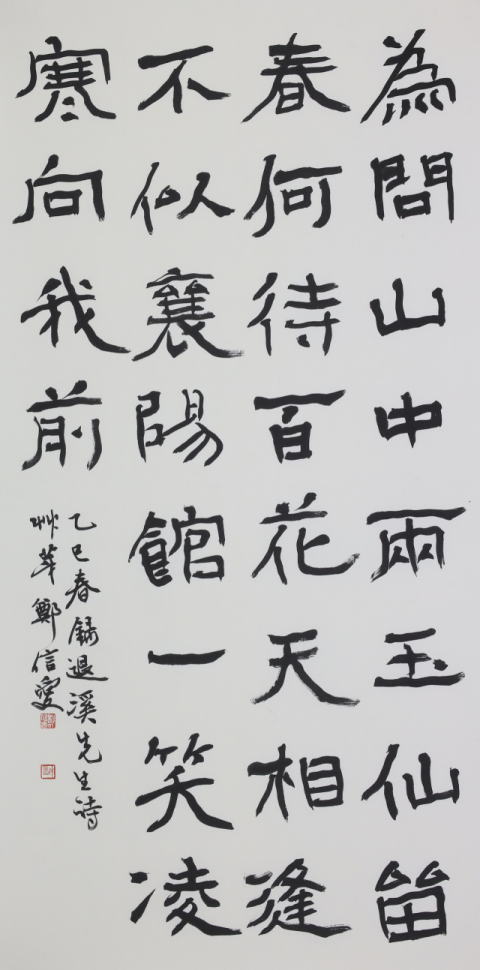 為問山中兩玉仙留
春何待百花天相逢
不似襄陽館一笑凌
寒向我前
乙巳春錄退溪先生詩
草 鄭信愛